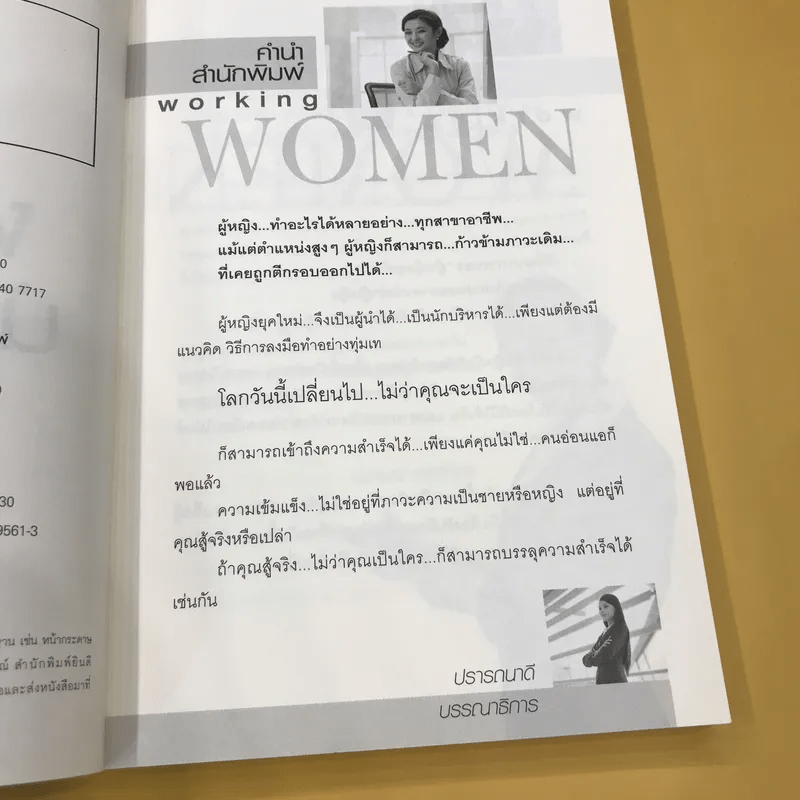 0
40 7717
พ์
30
9561-3
ฐาน เช่น หน้ากระดาษ
ณ์ สำนักพิมพ์ยินดี
อและส่งหนังสือมาที่
คำนำ
สำนักพิมพ์
working
WOMEN
ผู้หญิง...ทำอะไรได้หลายอย่าง...ทุกสาขาอาชีพ...
แม้แต่ตำแหน่งสูงๆ ผู้หญิงก็สามารถ...ก้าวข้ามภาวะเดิม...
ที่เคยถูกตีกรอบออกไปได้...
ผู้หญิงยุคใหม่...จึงเป็นผู้นำได้...เป็นนักบริหารได้...เพียงแต่ต้องมี
แนวคิด วิธีการลงมือทำอย่างทุ่มเท
โลกวันนี้เปลี่ยนไป...ไม่ว่าคุณจะเป็นใคร
ก็สามารถเข้าถึงความสำเร็จได้...เพียงแค่คุณไม่ใช่...คนอ่อนแอก็
พอแล้ว
ความเข้มแข็ง...ไม่ใช่อยู่ที่ภาวะความเป็นชายหรือหญิง แต่อยู่ที่
คุณสู้จริงหรือเปล่า
ถ้าคุณสู้จริง...ไม่ว่าคุณเป็นใคร...ก็สามารถบรรลุความสำเร็จได้
เช่นกัน
ปรารถนาดี
บรรณาธิการ